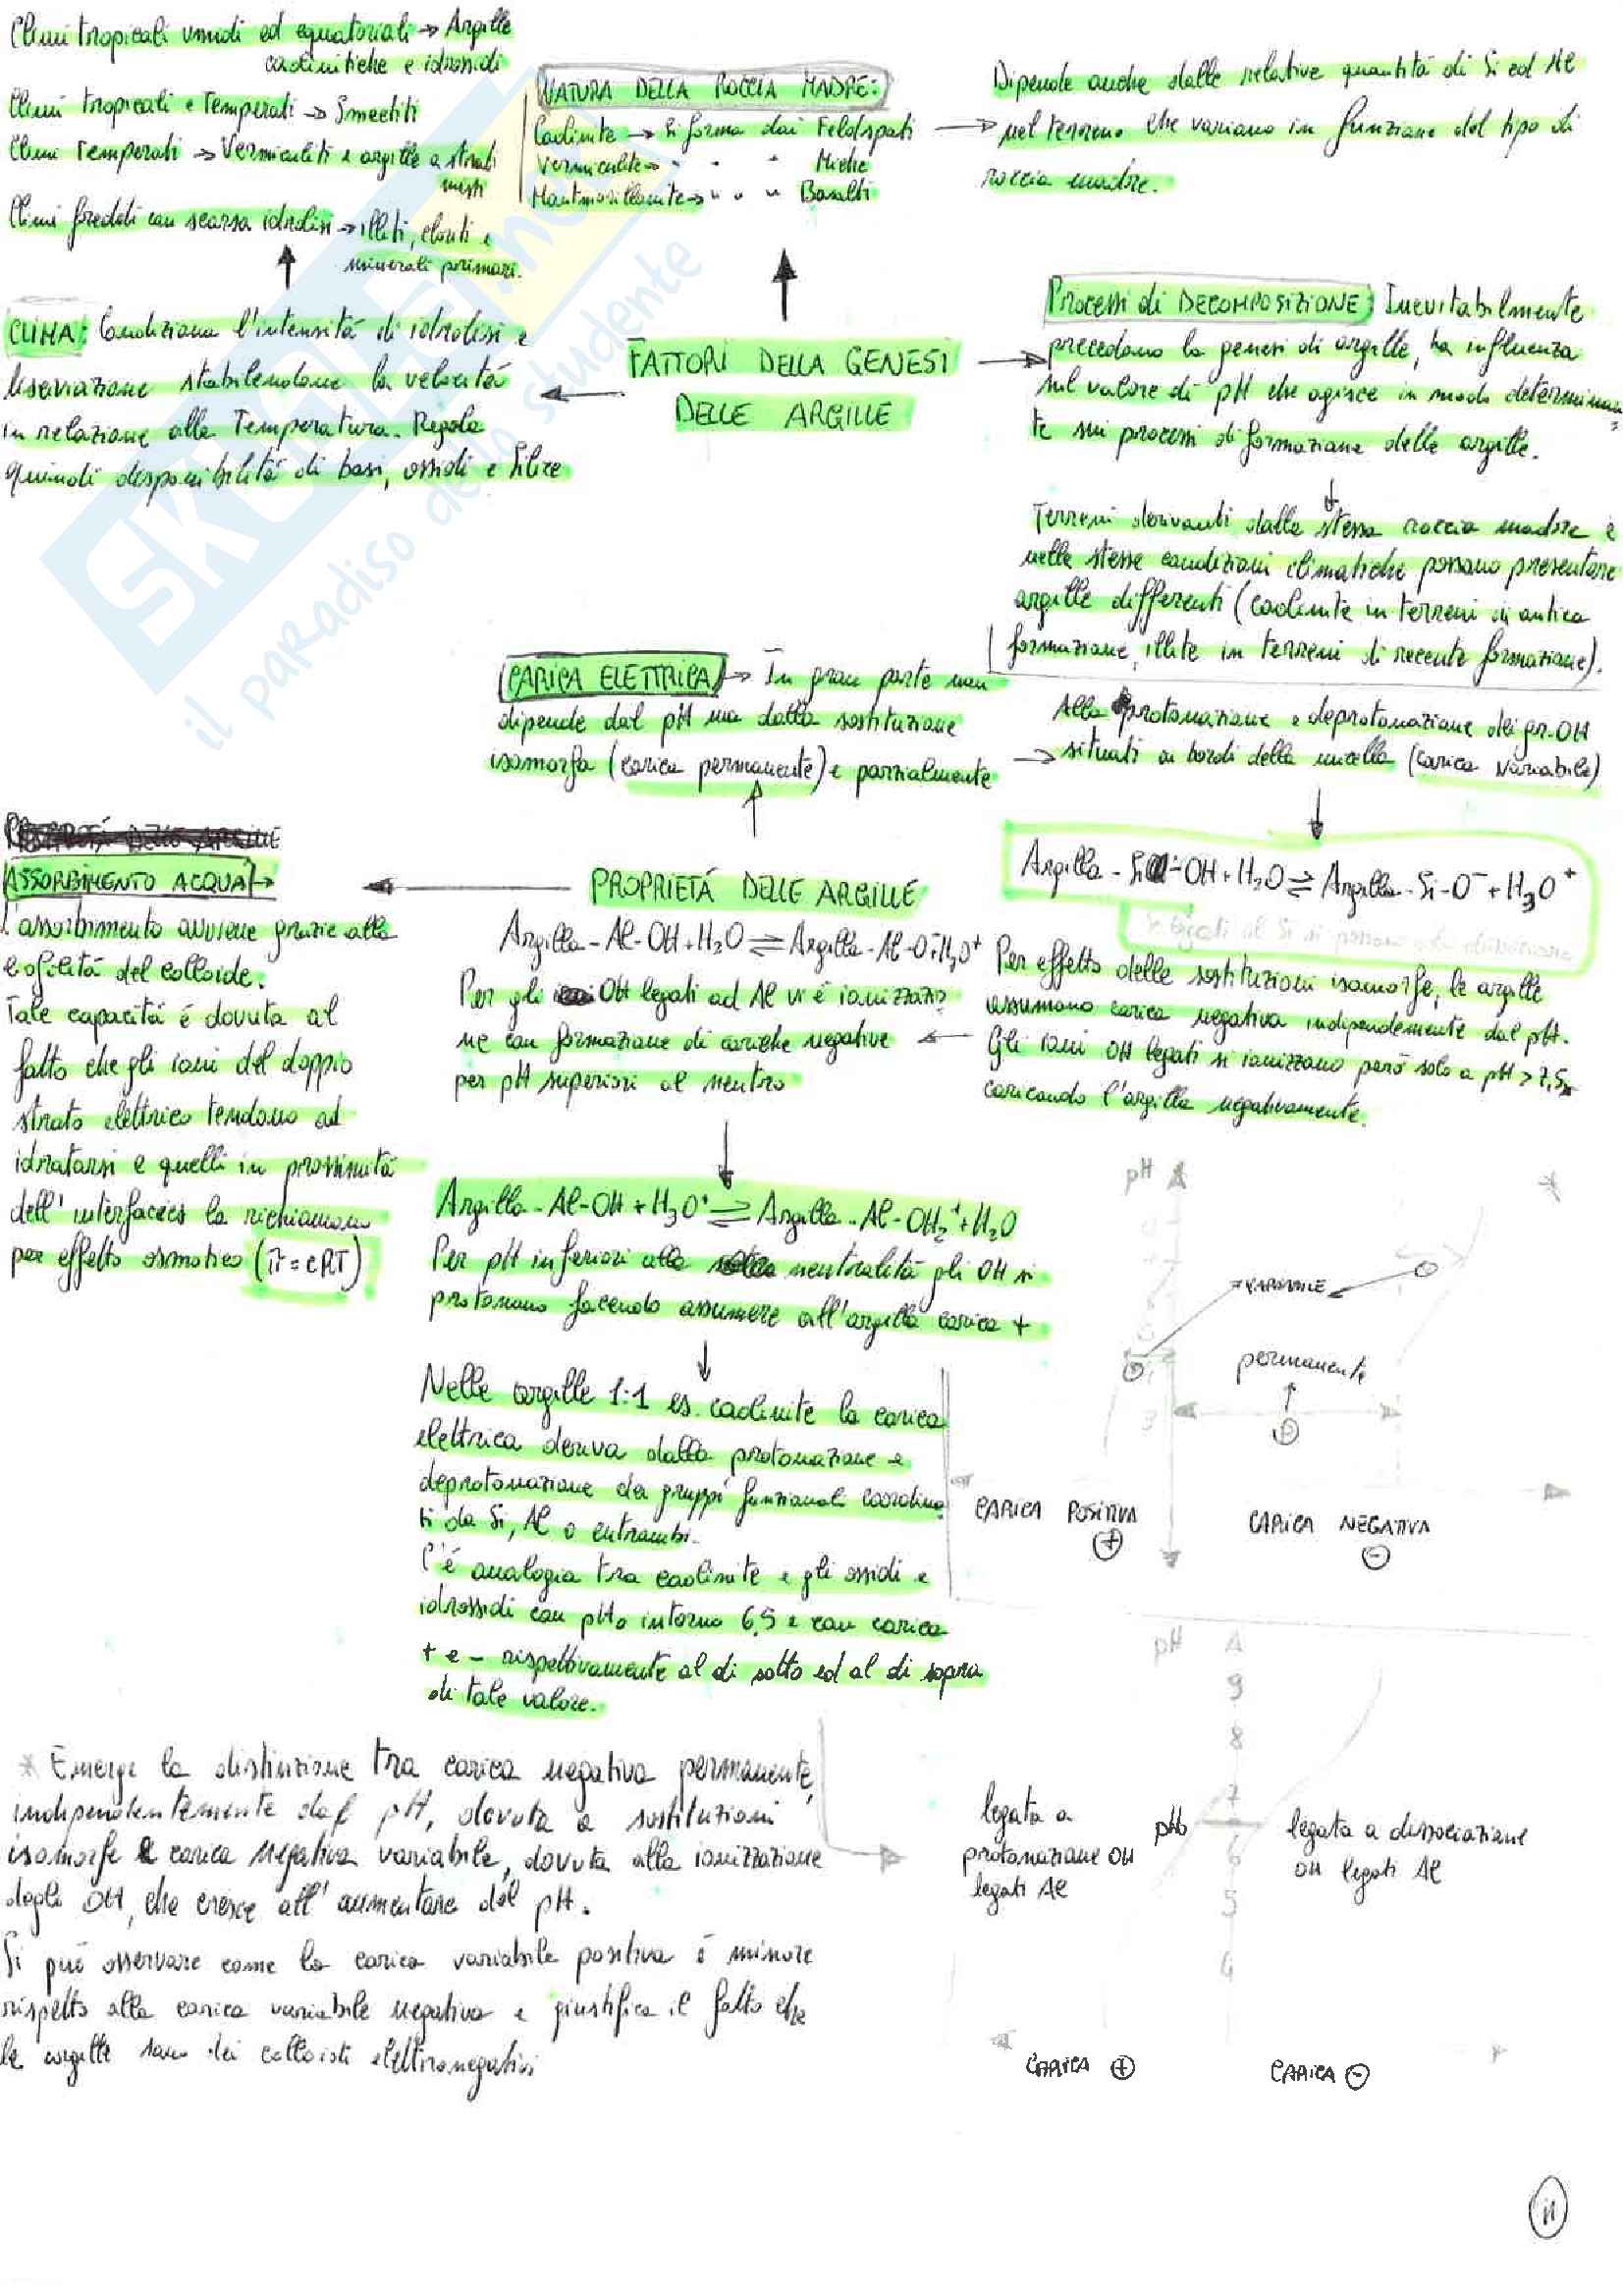 Climi tropicali umidi ed equatoriali → Argille
caolinitiche e idrossidi
Climi tropicali e Temperati → Smectiti
Climi Temperati → Vermiculiti e argille a strati
misti
Climi freddi con scarsa idrolisi → illiti, cloriti e
minerali primari.
NATURA DELLA ROCCIA MADRE:
Caolinite → Si forma dai Feldspati
Vermiculite → " " " Miche
Montmorillonite → " " " Basalti
Dipende anche dalle relative quantità di Si ed Al
→ nel terreno che variano in funzione del tipo di
roccia madre.
CLIMA: Condiziona l'intensità di idrolisi e
lisciviazione stabilendone la velocità
in relazione alla Temperatura. Regola
quindi disponibilità di basi, ossidi e Silice
FATTORI DELLA GENESI
DELLE ARGILLE
Processi di DECOMPOSIZIONE: Inevitabilmente
precedono la genesi di argille, ha influenza
sul valore di pH che agisce in modo determinan
te sui processi di formazione delle argille.
Terreni derivanti dalla stessa roccia madre e
nelle stesse condizioni climatiche possono presentare
argille differenti (caolinite in terreni di antica
formazione, illite in terreni di recente formazione).
CARICA ELETTRICA → In gran parte non
dipende dal pH ma dalla sostituzione
isomorfa (carica permanente) e parzialmente
Alla protonazione e deprotonazione dei gr. OH
→ situati ai bordi della micella (carica variabile)
Argilla-Si-OH + H₂O ⇌ Argilla-Si-O⁻ + H₃O⁺
PROPRIETÁ DELLE ARGILLE
ASSORBIMENTO ACQUA →
L'assorbimento avviene grazie alla
liofilitá del colloide.
Tale capacitá é dovuta al
fatto che gli ioni del doppio
strato elettrico tendono ad
idratarsi e quelli in prossimità
dell'interfacies la richiamano
per effetto osmotico (π = cRT)
Argilla-Al-OH + H₂O ⇌ Argilla-Al-O⁻ H₃O⁺
Per gli OH legati ad Al vi é ionizzazio
ne con formazione di cariche negative
per pH superiori al neutro
Per effetto delle sostituzioni isomorfe, le argille
assumono carica negativa indipendemente dal pH.
Gli ioni OH legati si ionizzano peró solo a pH > 7,5
caricando l'argilla negativamente.
Argilla-Al-OH + H₃O⁺ ⇌ Argilla-Al-OH₂⁺ + H₂O
Per pH inferiori alla neutralitá gli OH si
protonano facendo assumere all'argilla carica +
Nelle argille 1:1 es. caolinite la carica
elettrica deriva dalla protonazione e
deprotonazione da gruppi funzionali coordina
ti da Si, Al o entrambi.
C'é analogia tra caolinite e gli ossidi e
idrossidi con pH₀ intorno 6,5 e con carica
+ e - rispettivamente al di sotto ed al di sopra
di tale valore.
pH
VARIABILE
permanente
3
CARICA POSITIVA
+
CARICA NEGATIVA
-
* Emerge la distinzione tra carica negativa permanente,
indipendentemente dal pH, dovuta a sostituzioni
isomorfe e carica negativa variabile, dovuta alla ionizzazione
degli OH, che cresce all'aumentare del pH.
Si puó osservare come la carica variabile positiva é minore
rispetto alla carica variabile negativa e giustifica il fatto che
le argille sono dei colloidi elettronegativi
pH
9
8
7
6
5
4
legata a
protonazione OH
legati Al
pH₀
legata a dissociazione
OH legati Al
CARICA +
CARICA -
11
SKUOLA.net
il paradiso dello studente